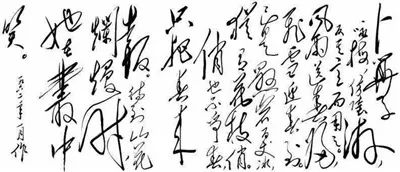 卜算子
詠梅 讀陸游,
反其意而用之。
風雨送春归,
飛雪迎春到
已是懸岩百丈冰,
猶有花枝俏。
俏也不争春
只把春来
報。待到山花
爛熳時
她在叢中
笑。一九六二年一月作